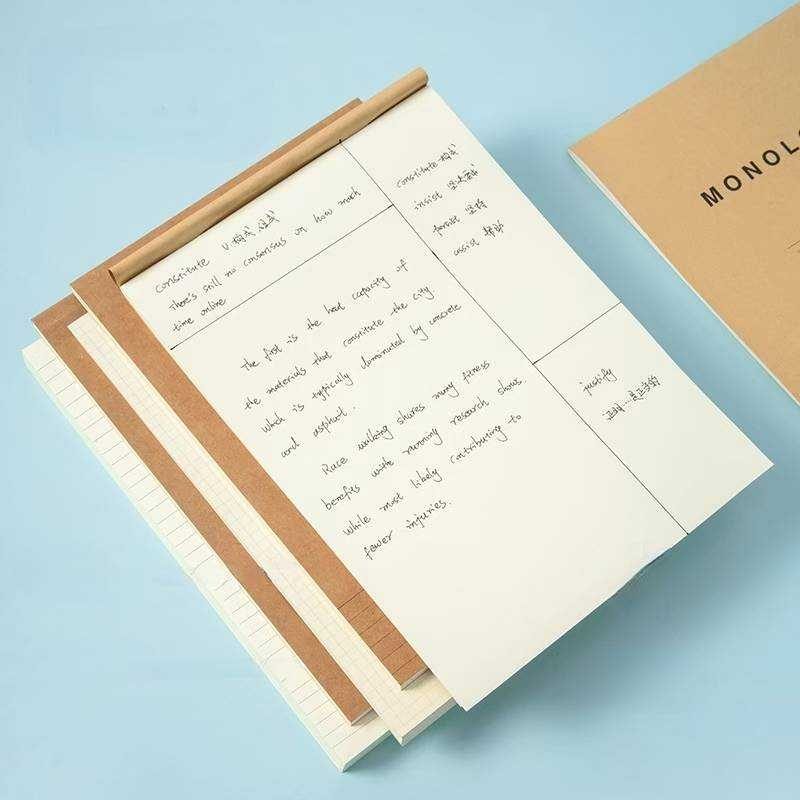 constitute v. 构成 组成
There's still no consensus on how much
time online
constitute 构成
insist 坚决要求
persist 坚持
assist 帮助
The first is the heat capacity of
the materials that constitute the city
which is typically dominated by concrete
and asphalt.
Race walking shares many fitness
benefits with running research shows.
while most likely contributing to
fewer injuries.
justify
证明…是正当的
MONOLO